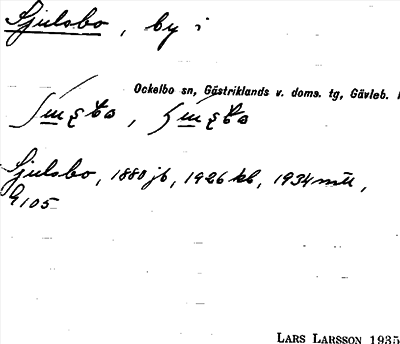 Sjulsbo, by i
Ockelbo sn, Gästriklands v. doms. tg, Gävleb.
Sjulsbo, 1880 jb, 1926 kb, 1934 mtl,
G 105
LARS LARSSON 1935